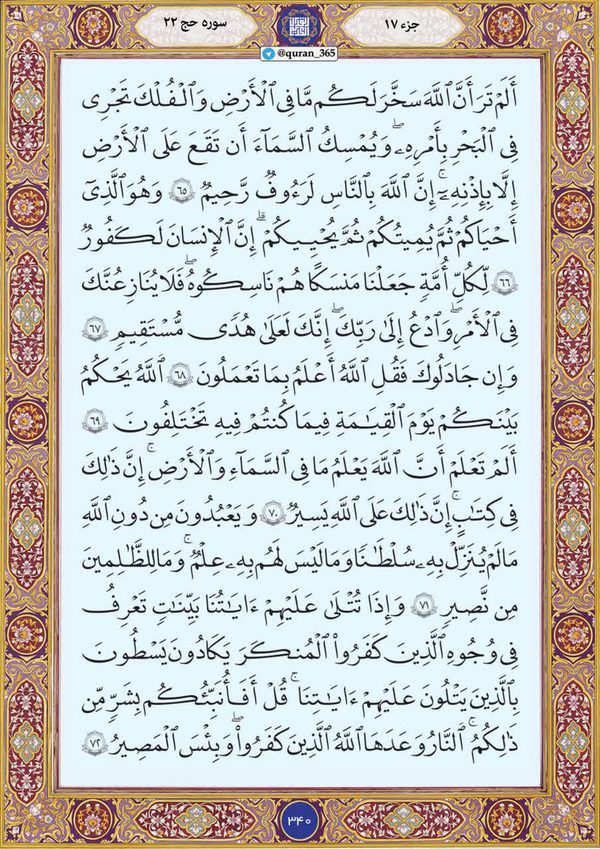 جزء ۱۷
سوره حج ۲۲
@quran_365
أَلَمْ تَرَ أَنَّ ٱللَّهَ سَخَّرَ لَكُم مَّا فِى ٱلْأَرْضِ وَٱلْفُلْكَ تَجْرِى
فِى ٱلْبَحْرِ بِأَمْرِهِۦ وَيُمْسِكُ ٱلسَّمَآءَ أَن تَقَعَ عَلَى ٱلْأَرْضِ
إِلَّا بِإِذْنِهِۦٓ ۗ إِنَّ ٱللَّهَ بِٱلنَّاسِ لَرَءُوفٌ رَّحِيمٌ ۶۵ وَهُوَ ٱلَّذِىٓ
أَحْيَاكُمْ ثُمَّ يُمِيتُكُمْ ثُمَّ يُحْيِيكُمْ ۗ إِنَّ ٱلْإِنسَانَ لَكَفُورٌ
۶۶ لِّكُلِّ أُمَّةٍ جَعَلْنَا مَنسَكًا هُمْ نَاسِكُوهُ ۖ فَلَا يُنَازِعُنَّكَ
فِى ٱلْأَمْرِ ۚ وَٱدْعُ إِلَىٰ رَبِّكَ ۖ إِنَّكَ لَعَلَىٰ هُدًى مُّسْتَقِيمٍ ۶۷
وَإِن جَادَلُوكَ فَقُلِ ٱللَّهُ أَعْلَمُ بِمَا تَعْمَلُونَ ۶۸ ٱللَّهُ يَحْكُمُ
بَيْنَكُمْ يَوْمَ ٱلْقِيَامَةِ فِيمَا كُنتُمْ فِيهِ تَخْتَلِفُونَ ۶۹
أَلَمْ تَعْلَمْ أَنَّ ٱللَّهَ يَعْلَمُ مَا فِى ٱلسَّمَآءِ وَٱلْأَرْضِ ۗ إِنَّ ذَٰلِكَ
فِى كِتَابٍ ۚ إِنَّ ذَٰلِكَ عَلَى ٱللَّهِ يَسِيرٌ ۷۰ وَيَعْبُدُونَ مِن دُونِ ٱللَّهِ
مَا لَمْ يُنَزِّلْ بِهِۦ سُلْطَٰنًا وَمَا لَيْسَ لَهُم بِهِۦ عِلْمٌ ۗ وَمَا لِلظَّٰلِمِينَ
مِن نَّصِيرٍ ۷۱ وَإِذَا تُتْلَىٰ عَلَيْهِمْ ءَايَاتُنَا بَيِّنَاتٍ تَعْرِفُ
فِى وُجُوهِ ٱلَّذِينَ كَفَرُوا۟ ٱلْمُنكَرَ ۖ يَكَادُونَ يَسْطُونَ
بِٱلَّذِينَ يَتْلُونَ عَلَيْهِمْ ءَايَاتِنَا ۗ قُلْ أَفَأُنَبِّئُكُم بِشَرٍّ مِّن
ذَٰلِكُمُ ۗ ٱلنَّارُ وَعَدَهَا ٱللَّهُ ٱلَّذِينَ كَفَرُوا۟ ۖ وَبِئْسَ ٱلْمَصِيرُ ۷۲
۳۴۰